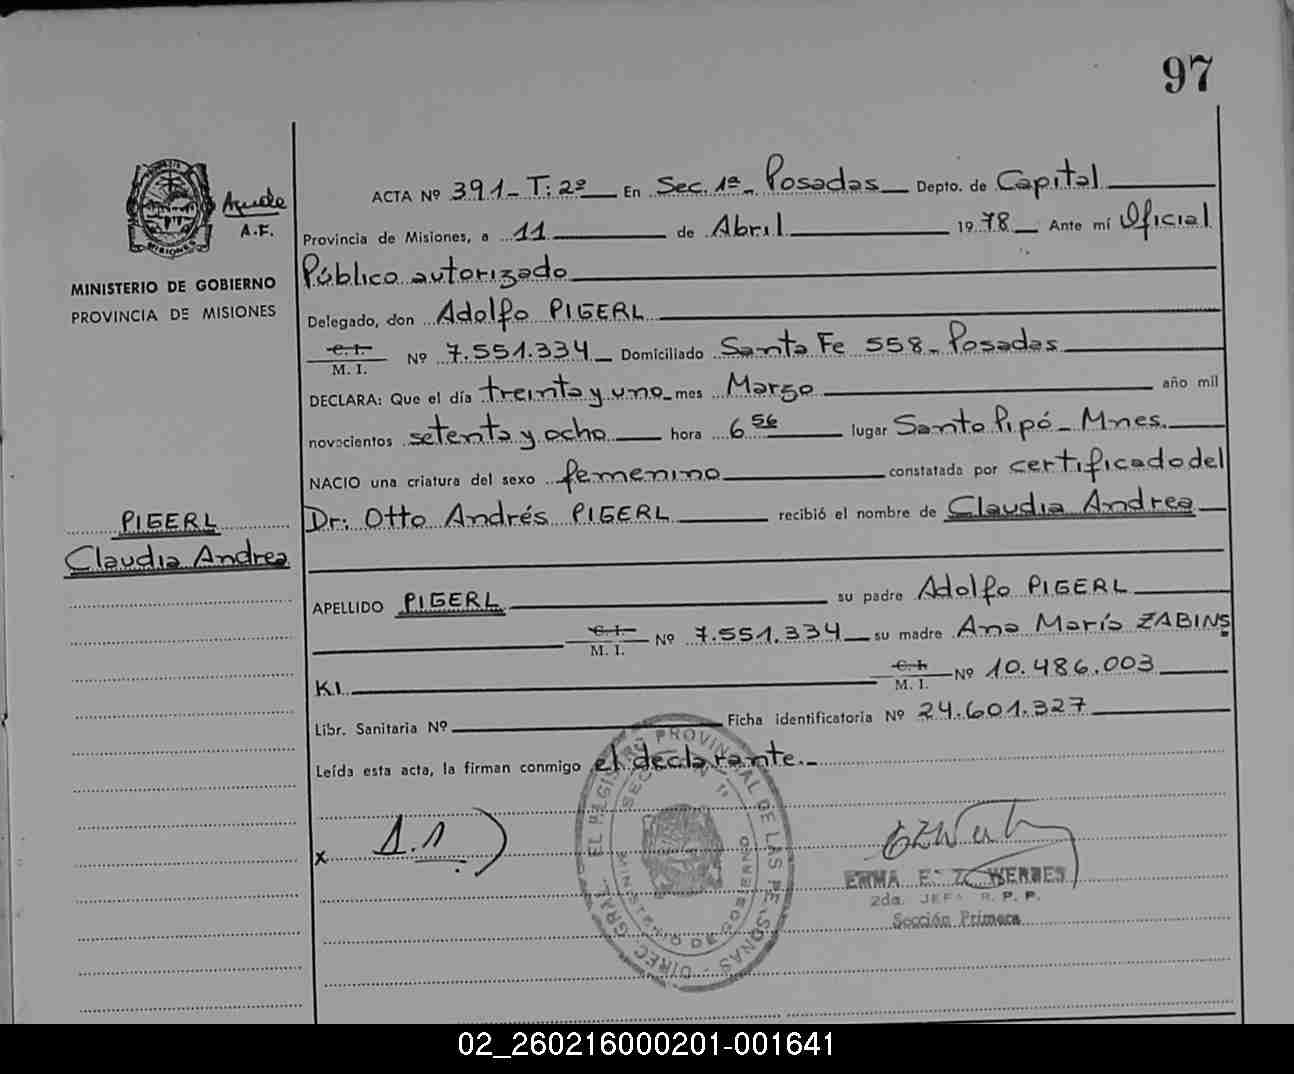 97
ACTA Nº 391- T: 2º En Sec. 1ª - Posadas Depto. de Capital
A.F.
Provincia de Misiones, a 11 de Abril 1978 Ante mí Oficial
MINISTERIO DE GOBIERNO
PROVINCIA DE MISIONES
Público autorizado
Delegado, don Adolfo PIGERL
C. I.
M. I. Nº 7.551.334 Domiciliado Santa Fe 558 - Posadas
DECLARA: Que el día treinta y uno mes Marzo año mil
novecientos setenta y ocho hora 6 56 lugar Santo Pipó - Mnes.
NACIO una criatura del sexo femenino constatada por certificado del
Dr: Otto Andrés PIGERL recibió el nombre de Claudia Andrea
PIGERL
Claudia Andrea
APELLIDO PIGERL su padre Adolfo PIGERL
C. I.
M. I. Nº 7.551.334 su madre Ana María ZABINS
KI. C. I.
M. I. Nº 10.486.003
Libr. Sanitaria Nº Ficha identificatoria Nº 24.601.327
Leída esta acta, la firman conmigo el declarante.-
x
DIREC. GRAL. EL REGISTRO PROVINCIAL DE LAS PERSONAS
SECCION 1ª
MINISTERIO DE GOBIERNO
2da. JEFA R. P. P.
Sección Primera
02_260216000201-001641